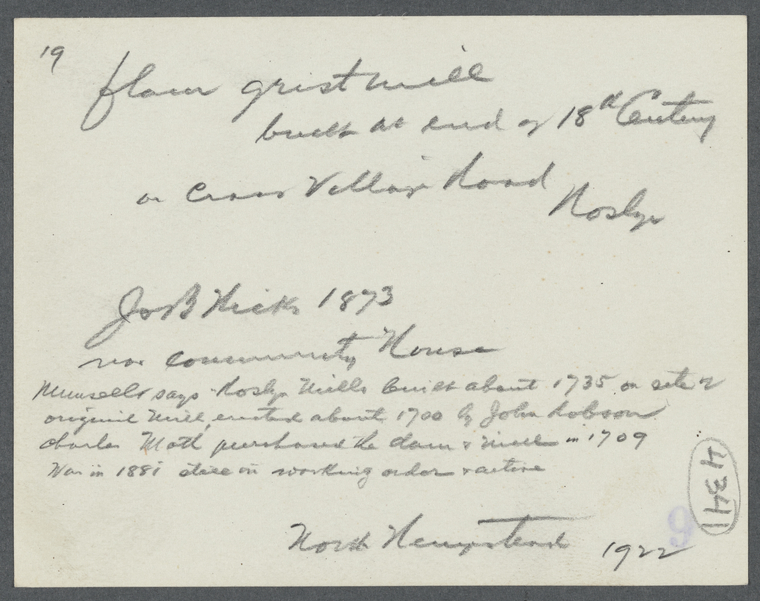 19
flour grist mill
built at end of 18th Century
on Cross Village Road
Roslyn
Jos B Hicks 1873
now Community House
Munsells says Roslyn Mills built about 1735 on site of
original mill, erected about 1700 by John Robson
Charles Mott purchased the dam & mill in 1709
Was in 1881 still in working order & active
4341
9
North Hempstead 1922